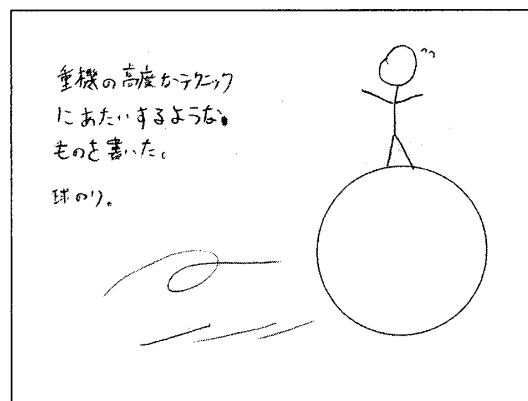 重機の高度なテクニック
にあたいするような
ものを書いた。
球のり。